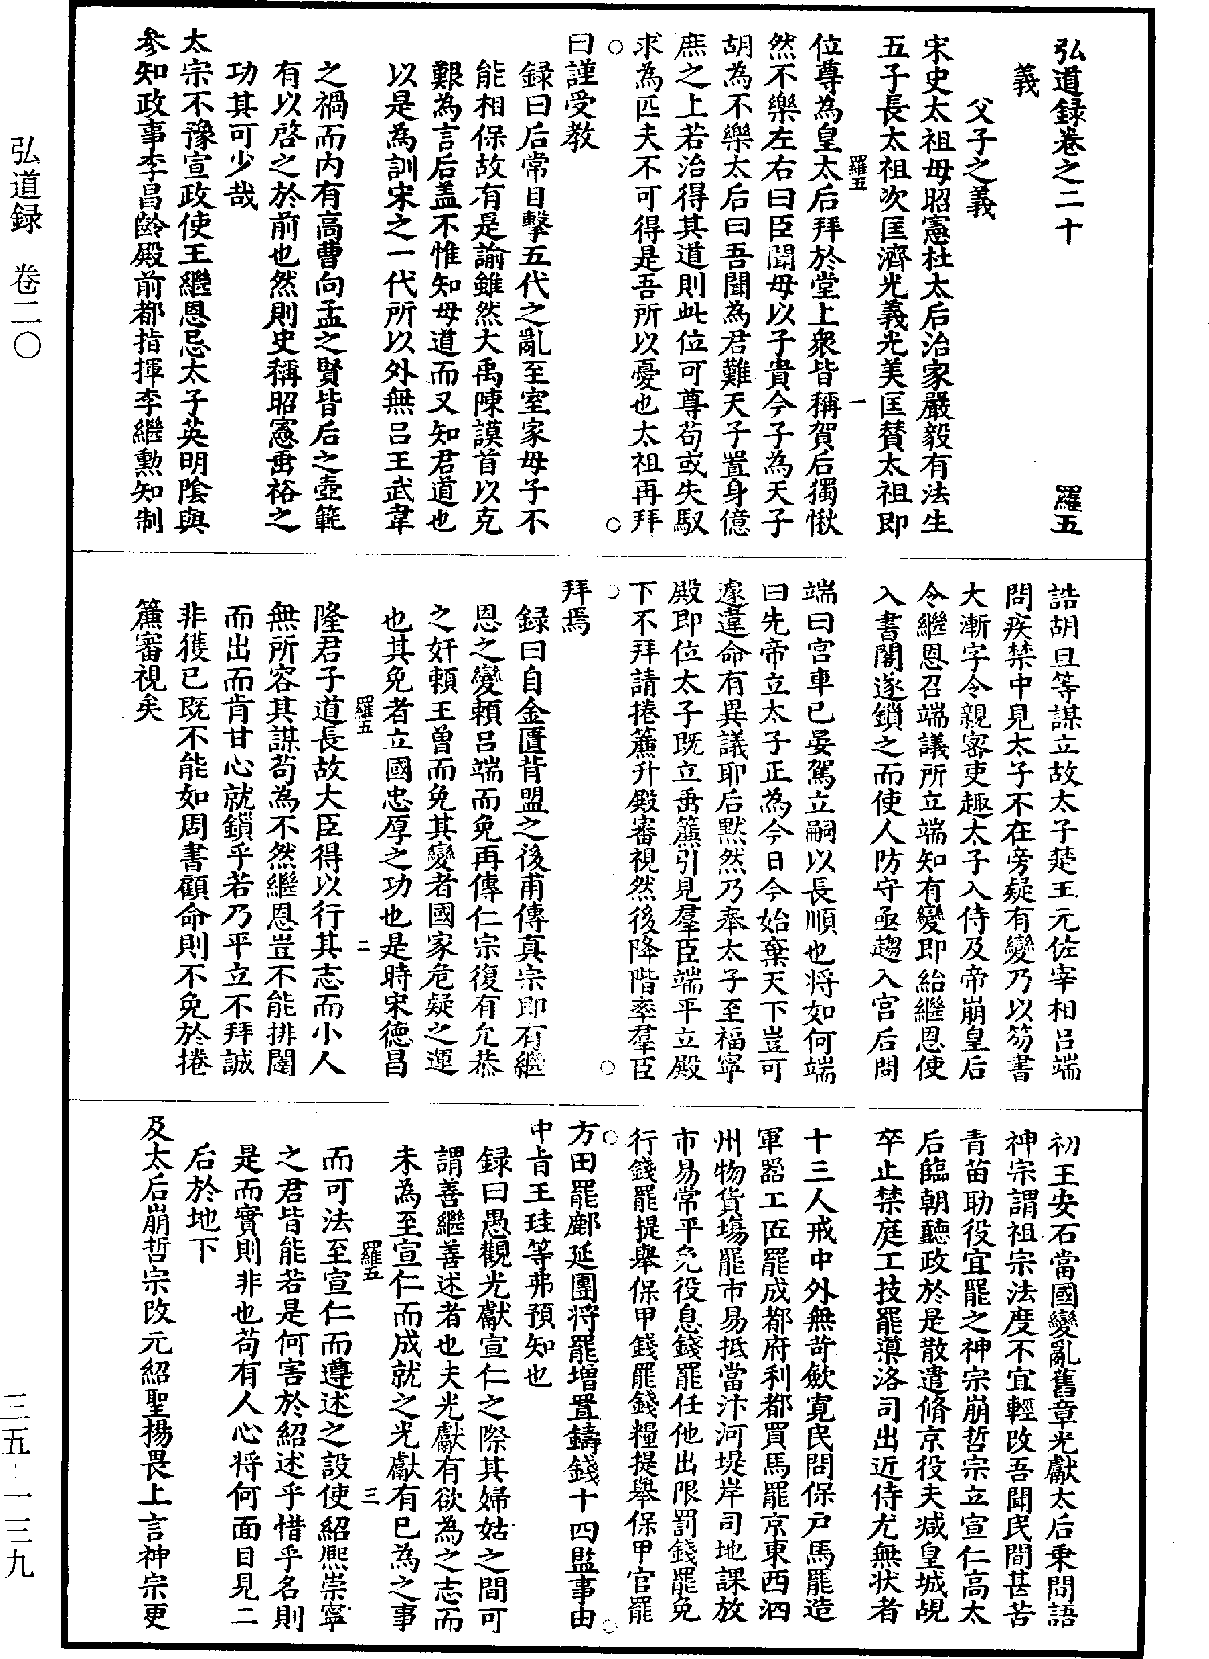 弘道録卷之二十　羅五
義
父子之義
宋史太祖母昭憲杜太后治家嚴毅有法生
五子長太祖次匡濟光義光美匡賛太祖即
羅五　一
位尊為皇太后拜於堂上衆皆稱賀后獨愀
然不樂左右曰臣聞母以子貴今子為天子
胡為不樂太后曰吾聞為君難天子置身億
庶之上若治得其道則此位可尊苟或失馭
求為匹夫不可得是吾所以憂也太祖再拜
曰謹受教
録曰后常目擊五代之亂至室家母子不
能相保故有是諭雖然大禹陳謨首以克
艱為言后盖不惟知母道而又知君道也
以是為訓宋之一代所以外無呂王武韋
之禍而内有高曹向孟之賢皆后之壼範
有以啓之於前也然則史稱昭憲垂裕之
功其可少哉
太宗不豫宣政使王繼恩忌太子英明陰與
参知政事李昌齡殿前都指揮李繼勲知制
誥胡旦等謀立故太子楚王元佐宰相呂端
問疾禁中見太子不在旁疑有變乃以笏書
大漸字令親審吏趣太子入侍及帝崩皇后
令繼恩召端議所立端知有變即紿繼恩使
入書閣遂鎖之而使人防守亟趨入宫后問
端曰宫車已晏駕立嗣以長順也将如何端
曰先帝立太子正為今日今始棄天下豈可
遽違命有異議耶后黙然乃奉太子至福寧
殿即位太子既立垂簾引見羣臣端平立殿
下不拜請捲簾升殿審視然後降階率羣臣
拜焉
録曰自金匱背盟之後甫傳真宗即有繼
恩之變頼呂端而免再傳仁宗復有允恭
之奸頼王曾而免其變者國家危疑之運
也其免者立國忠厚之功也是時宋德昌
羅五　二
隆君子道長故大臣得以行其志而小人
無所容其謀苟為不然繼恩豈不能排闥
而出而肯甘心就鎖乎若乃平立不拜誠
非獲已既不能如周書顧命則不免於捲
簾審視矣
初王安石當國變亂舊章光獻太后乗間語
神宗謂祖宗法度不宜輕改吾聞民間甚苦
青苗助役宜罷之神宗崩哲宗立宣仁高太
后臨朝聽政於是散遣脩京役夫减皇城覘
卒止禁庭工技罷導洛司出近侍尤無状者
十三人戒中外無苛歛寛民間保户馬罷造
軍器工匠罷成都府利都買馬罷京東西泗
州物貨塲罷市易抵當汴河堤岸司地課放
市易常平免役息錢罷任他出限罰錢罷免
行錢罷提舉保甲錢罷錢糧提舉保甲官罷
方田罷鄜延團将罷増置鑄錢十四監事由
中旨王珪等弗預知也
録曰愚觀光獻宣仁之際其婦姑之間可
謂善繼善述者也夫光獻有欲為之志而
未為至宣仁而成就之光獻有已為之事
羅五　三
而可法至宣仁而遵述之設使紹熙崇寧
之君皆能若是何害於紹述乎惜乎名則
是而實則非也苟有人心将何面目見二
后於地下
及太后崩哲宗改元紹聖楊畏上言神宗更
弘道録　卷二〇
三五-一三九